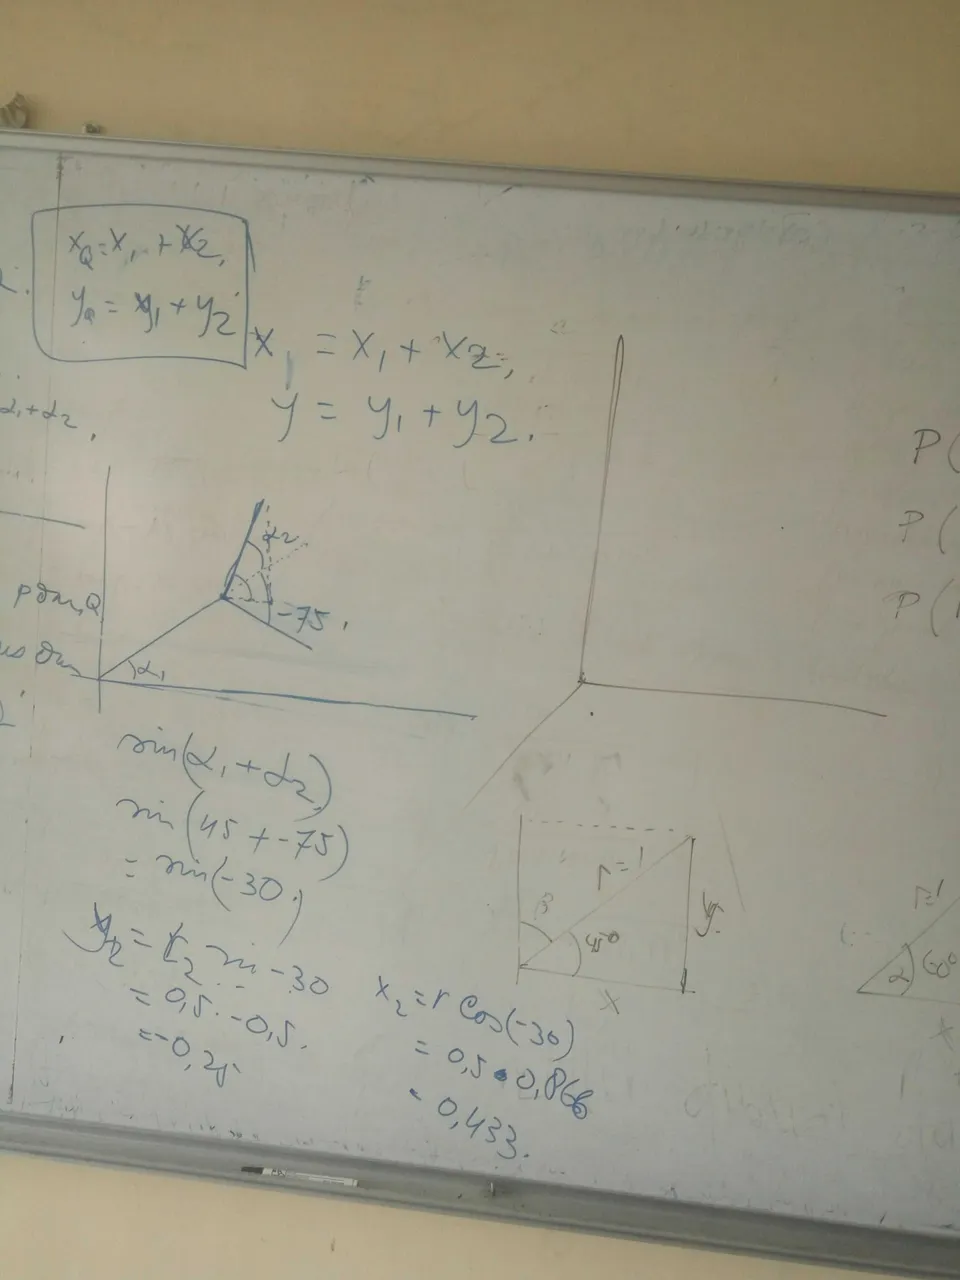 x_Q = x₁ + x₂,
y_Q = y₁ + y₂
x₁ = x₁ + x₂,
y = y₁ + y₂.
α₁+α₂,
α₂
-75.
α₁
Q
sin(α₁ + α₂)
sin(45 + -75)
= sin(-30)
y₂ = r₂ sin -30
= 0,5 · -0,5.
= -0,25
x₂ = r cos(-30)
= 0,5 • 0,866
= 0,433.
r=1
β
45°
y
x
P(
P(
P(
r=1
α
60°
x